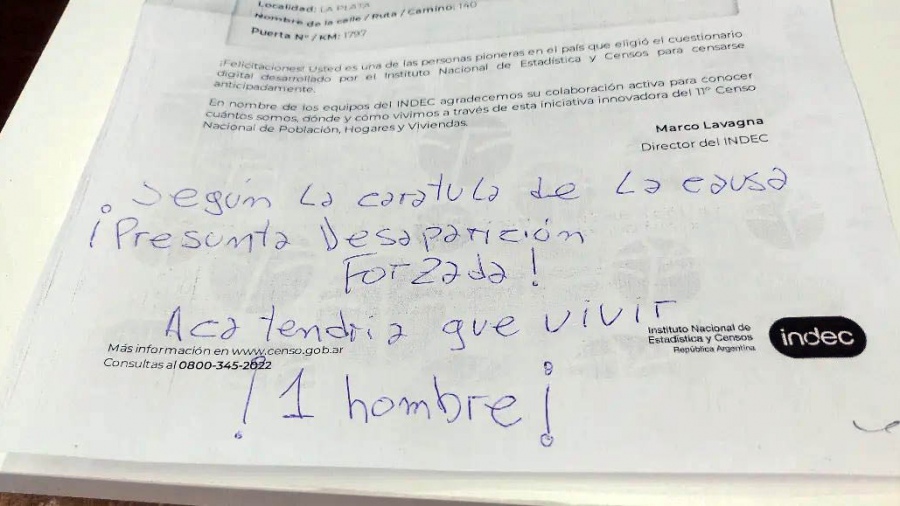 Localidad: LA PLATA
Nombre de la calle / Ruta / Camino: 140
Puerta Nº / KM: 1797
¡Felicitaciones! Usted es una de las personas pioneras en el país que eligió el cuestionario
digital desarrollado por el Instituto Nacional de Estadística y Censos para censarse
anticipadamente.
En nombre de los equipos del INDEC agradecemos su colaboración activa para conocer
cuántos somos, dónde y cómo vivimos a través de esta iniciativa innovadora del 11º Censo
Nacional de Población, Hogares y Viviendas.
Marco Lavagna
Director del INDEC
Según La caratula de La causa
¡Presunta Desaparición
Forzada!
Aca tendria que vivir
Más información en www.censo.gob.ar
Consultas al 0800-345-2022
Instituto Nacional de
Estadística y Censos
República Argentina
indec
¡1 hombre¡